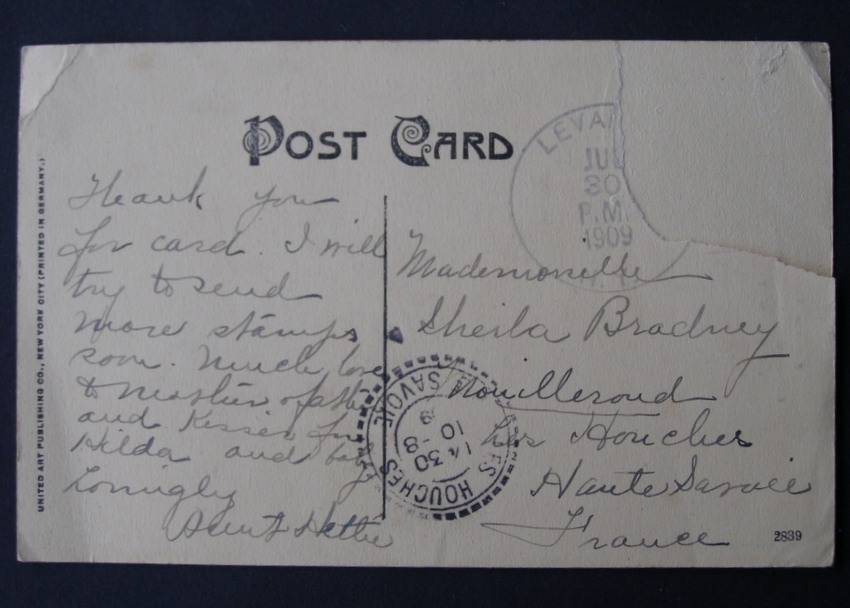 POST CARD
UNITED ART PUBLISHING CO., NEW YORK CITY (PRINTED IN GERMANY.)
Thank you
for card. I will
try to send
more stamps
soon. Much love
to
and Kisses for
Hilda and
Lovingly
Aunt Hettie
LEVAN
JUL
30
P.M.
1909
Mademoiselle
Sheila Bradney
Les Houches
Haute Savoie
France
LES HOUCHES
SAVOIE
14 30
10 -8
2839